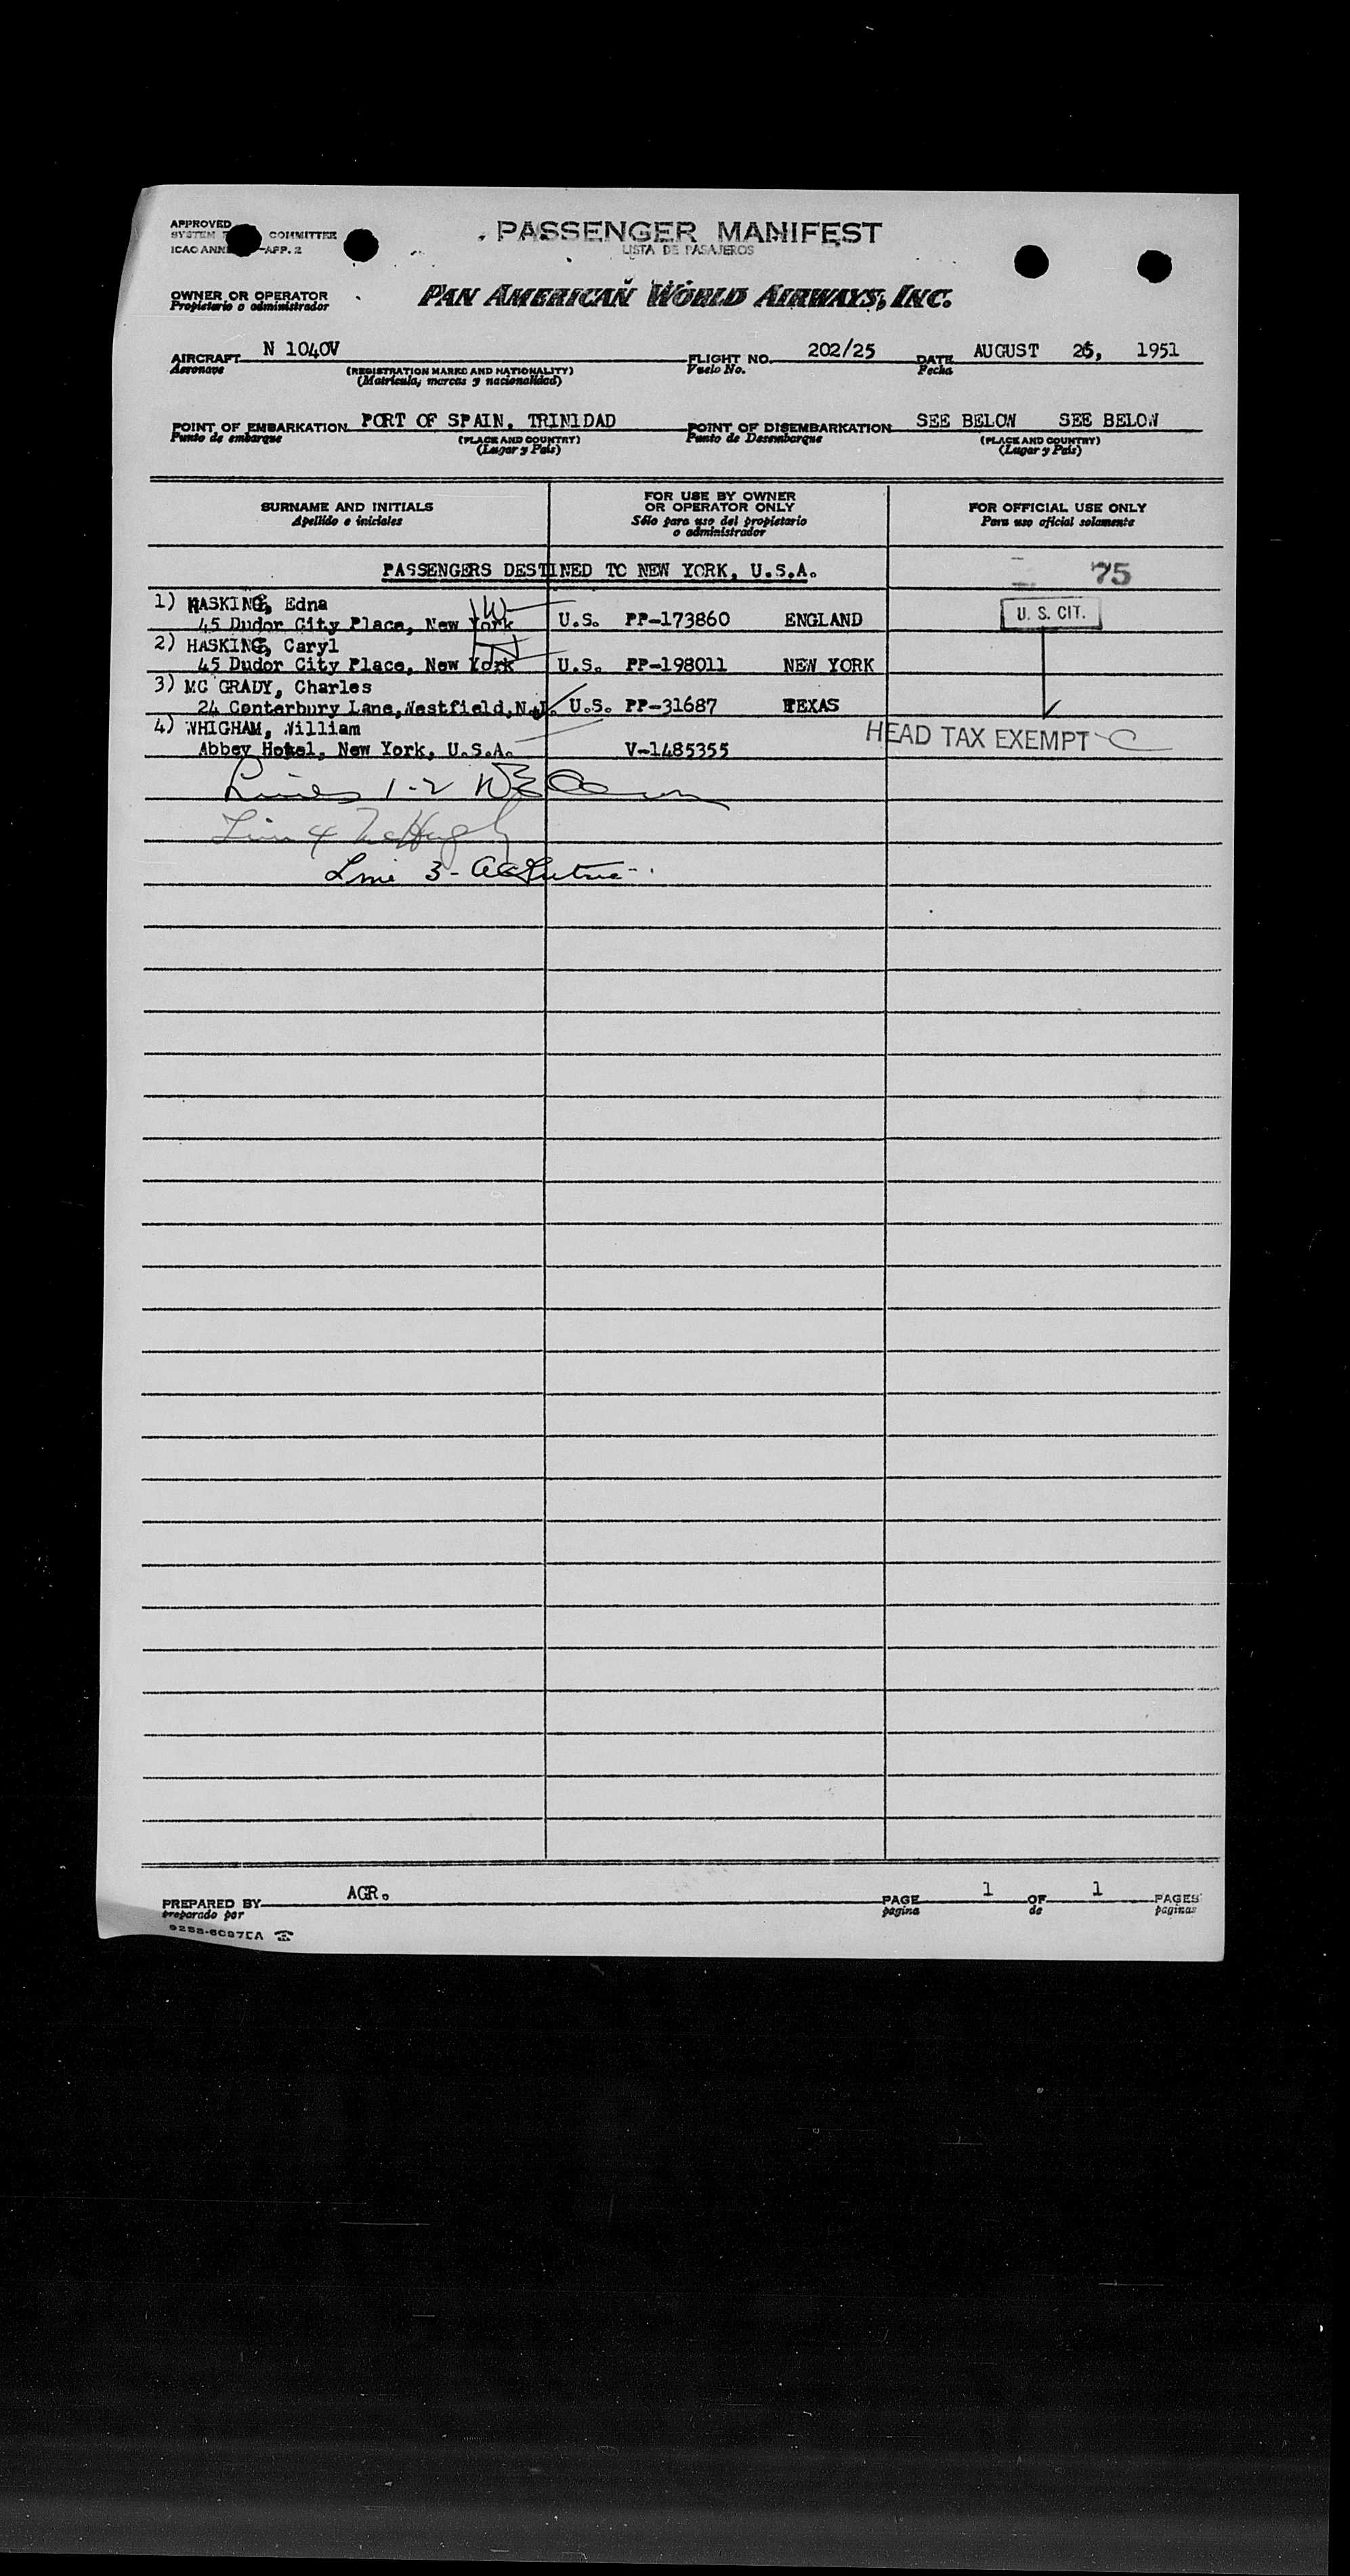 APPROVED
SYSTEM COMMITTEE
ICAO ANN -APP. 2
PASSENGER MANIFEST
LISTA DE PASAJEROS
OWNER OR OPERATOR
Propietario o administrador
PAN AMERICAN WORLD AIRWAYS, INC.
AIRCRAFT N 1040V FLIGHT NO. 202/25 DATE AUGUST 25, 1951
Aeronave (REGISTRATION MARKS AND NATIONALITY) Vuelo No. Fecha
(Matricula, marcas y nacionalidad)
POINT OF EMBARKATION PORT OF SPAIN, TRINIDAD POINT OF DISEMBARKATION SEE BELOW SEE BELOW
Punto de embarque (PLACE AND COUNTRY) Punto de Desembarque (PLACE AND COUNTRY)
(Lugar y País) (Lugar y País)
SURNAME AND INITIALS FOR USE BY OWNER OR OPERATOR ONLY FOR OFFICIAL USE ONLY
Apellido e iniciales Sólo para uso del propietario o administrador Para uso oficial solamente
PASSENGERS DESTINED TO NEW YORK, U.S.A. 75
1) HASKING, Edna
45 Dudor City Place, New York U.S. PP-173860 ENGLAND U. S. CIT.
2) HASKING, Caryl
45 Dudor City Place, New York U.S. PP-198011 NEW YORK
3) MC GRADY, Charles
24 Centerbury Lane, Westfield, N.J. U.S. PP-31687 TEXAS
4) WHIGHAM, William HEAD TAX EXEMPT C
Abbey Hotel, New York, U.S.A. V-1485355
Lines 1-2
Line 4 McHugh
Line 3-
PREPARED BY AGR. PAGE 1 OF 1 PAGES
preparado por pagina de paginas